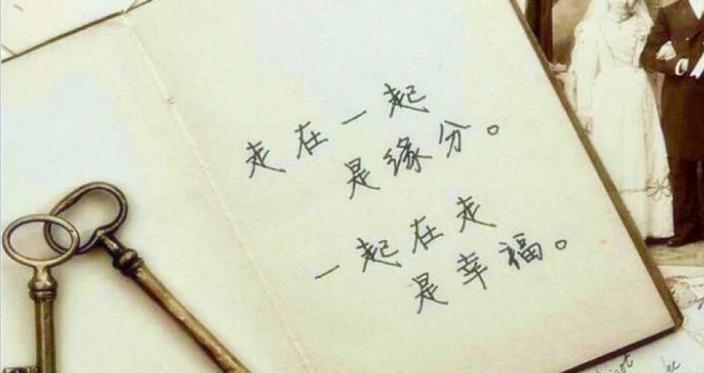 走在一起
是缘分。
一起在走
是幸福。